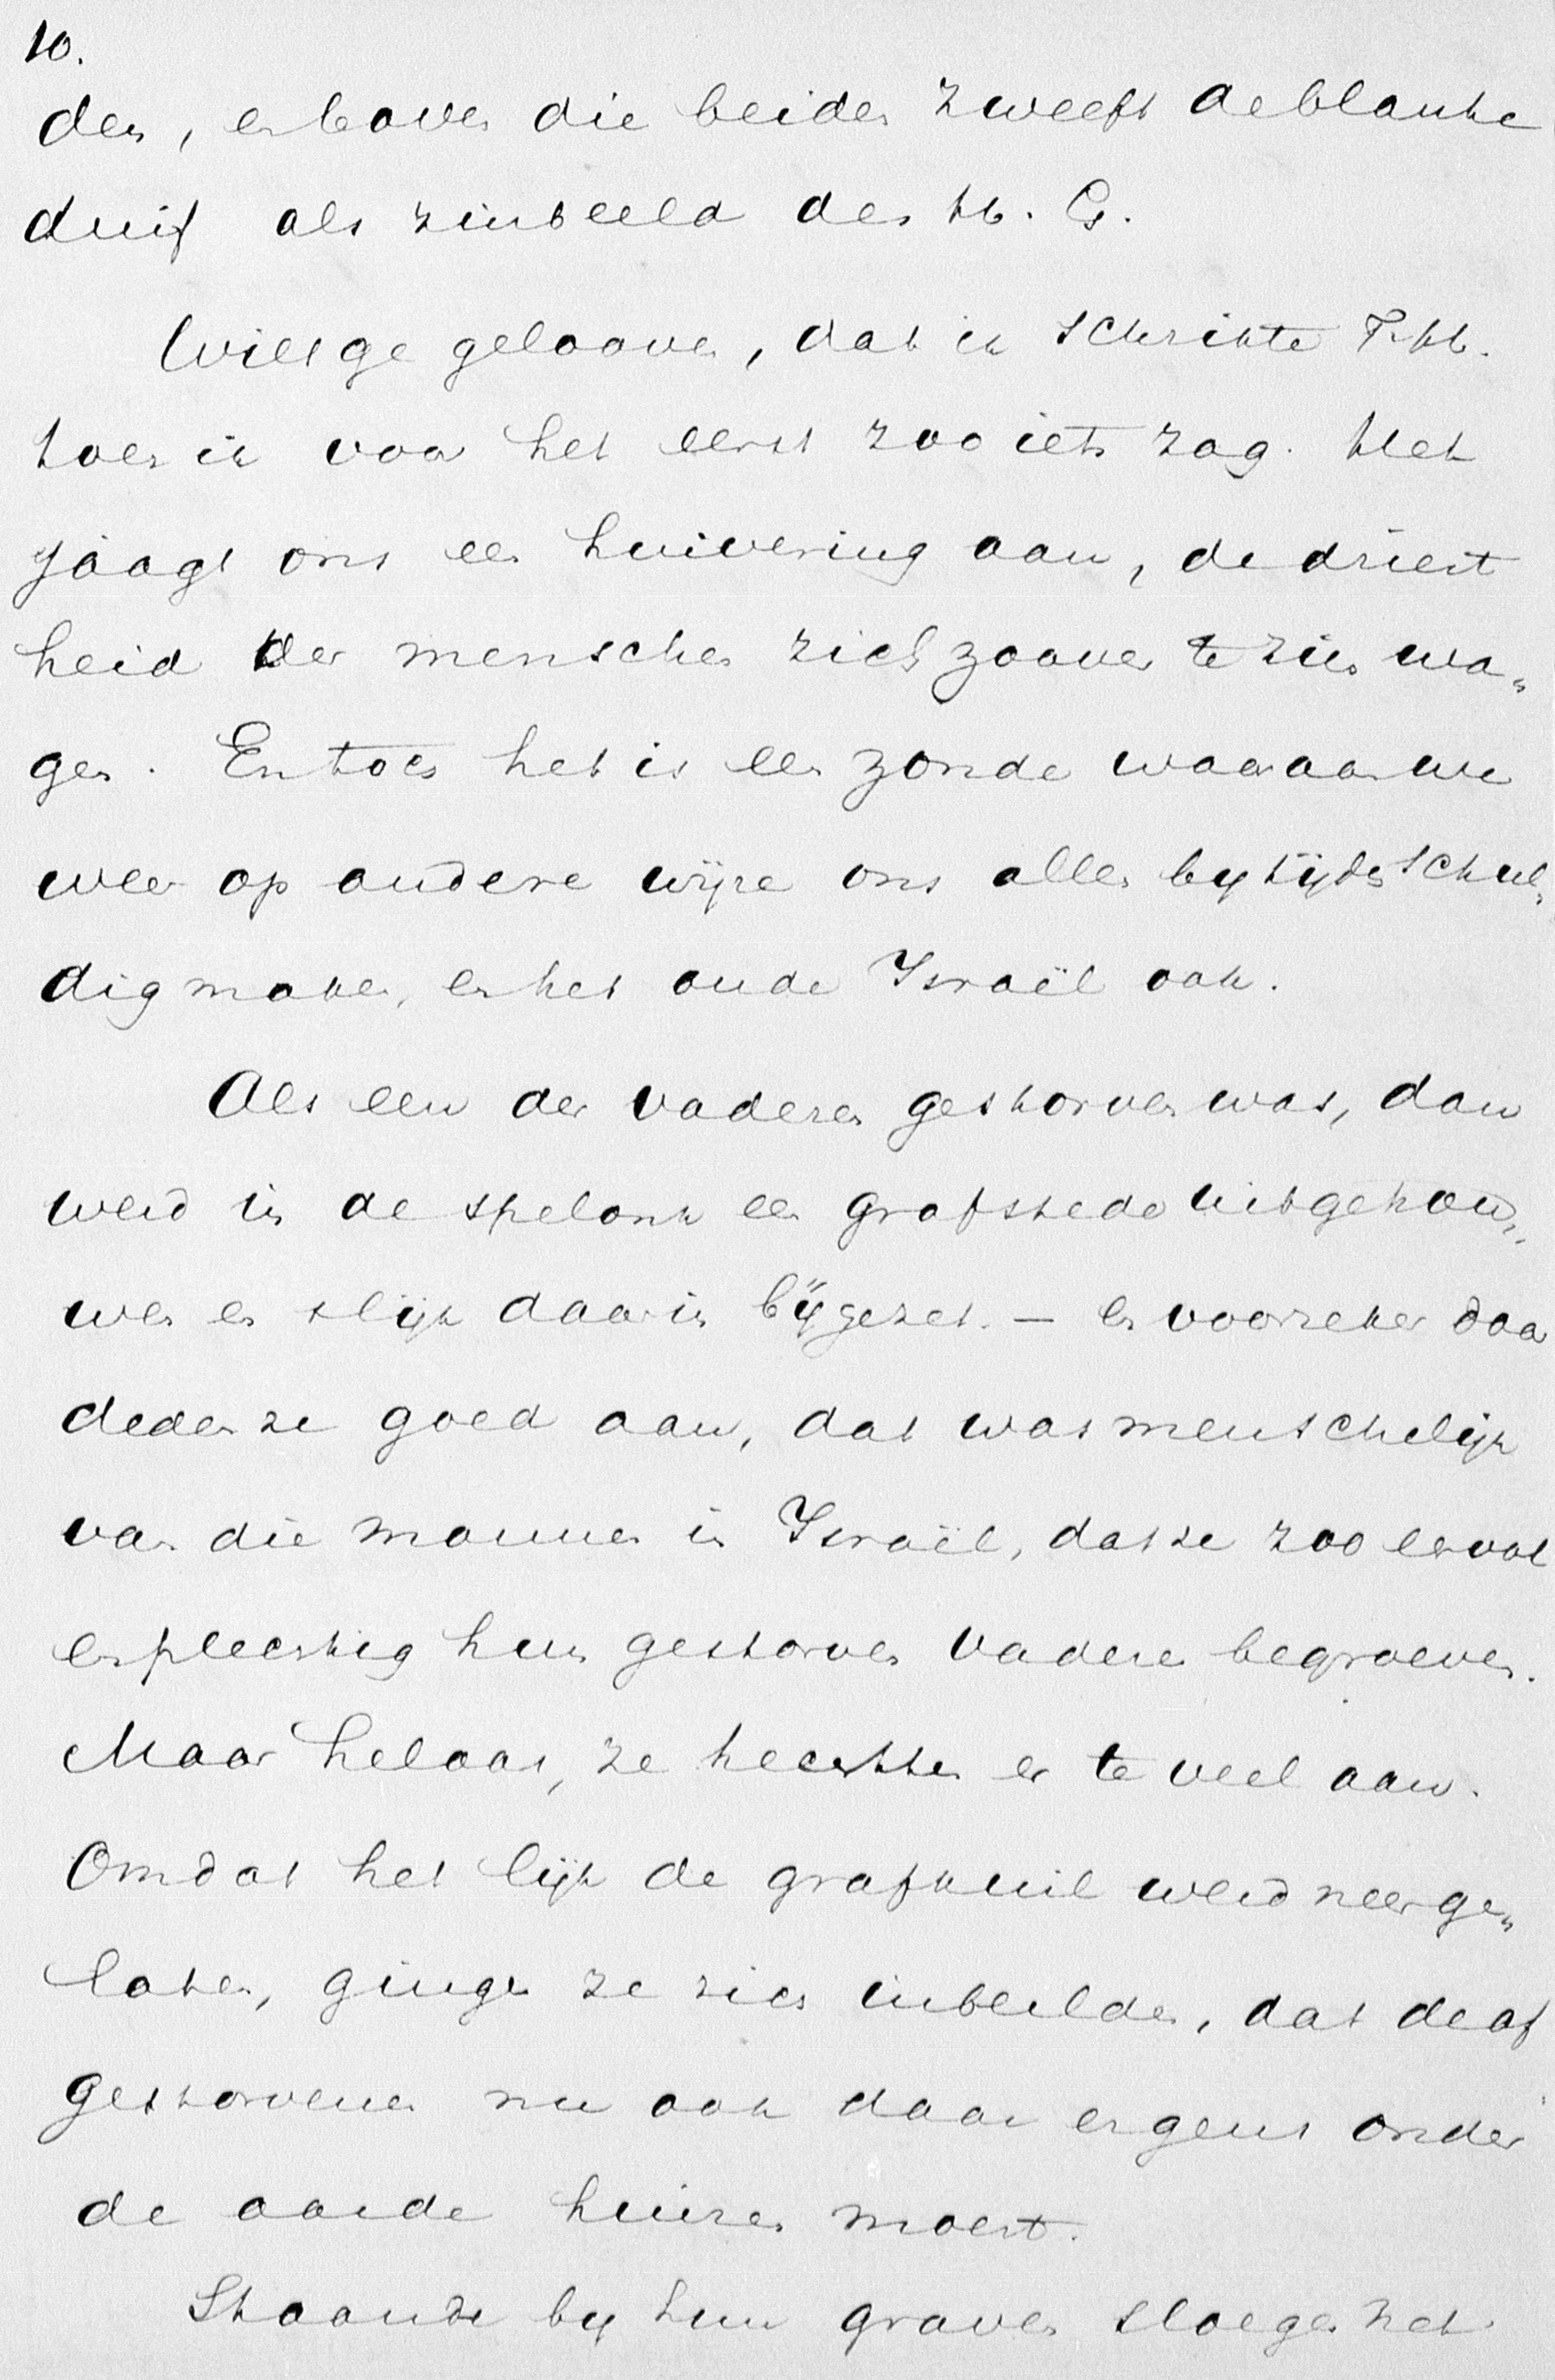 10.
den, en boven die beiden zweeft de blanke
duif als zinbeeld des H. G.
Wilt ge gelooven, dat ik schrikte T. H.
toen ik voor het eerst zoo iets zag. Het
jaagt ons een huivering aan, de driest
heid der menschen zich zoover te zien wa„
gen. En toch het is een zonde waaraan we
weer op andere wijze ons allen bij tijds schul„
dig maken, en het oude Israël ook.
Als een der vaderen gestorven was, dan
werd in de spelonk een grafstede uitgehou„
wen en 't lijk daarin bijgezet. — En voorzeker daar
deden ze goed aan, dat was menschelijk
van die mannen in Israël, dat ze zoo eervol
en pleechtig hun gestorven vaderen begroeven.
Maar helaas, ze hechtten er te veel aan.
Omdat het lijk de grafkuil werd neerge„
laten, gingen ze zich inbeelden, dat de af
gestorvenen nu ook daar ergens onder
de aarde huizen moest.
Staande bij hun graven sloegen het